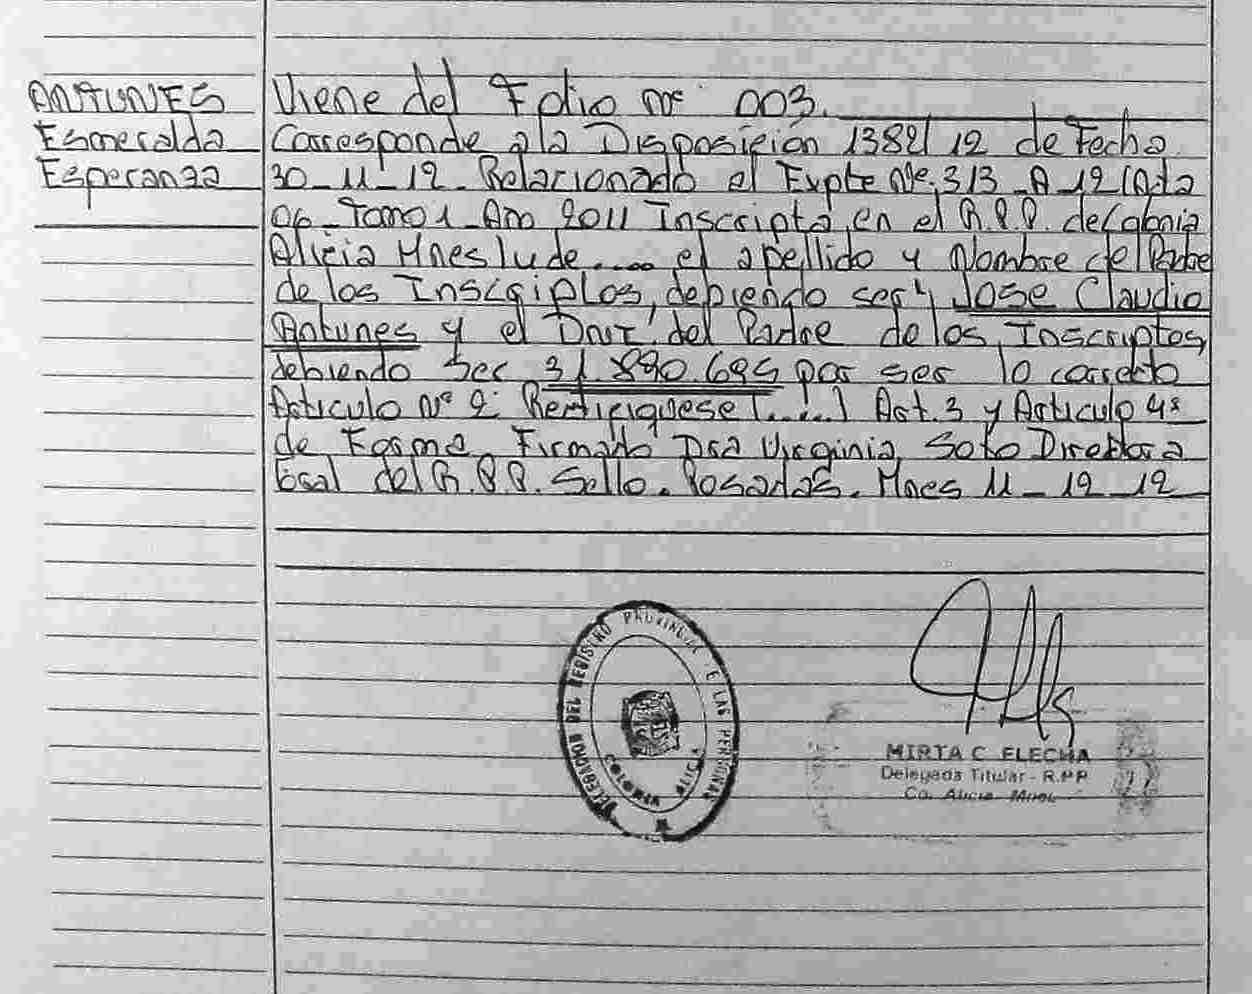 ANTUNES
Esmeralda
Esperanza
Viene del Folio Nº 003.
Corresponde a la Disposición 1382/12 de Fecha
30-11-12. Relacionado al Expte Nº 313-A-12 (Acta
06-Tomo 1-Año 2011 Inscripta en el R.P.P. de Colonia
Alicia Mnes lude..... el apellido y Nombre del Padre
de los Inscriptos, debiendo ser: Jose Claudio
Antunes y el DNI. del Padre de los Inscriptos,
debiendo ser 31.890.695 por ser lo correcto
Articulo Nº 2: Rectifiquese [......] Art. 3 y Articulo 4º
de Forma. Firmado Dra Virginia Soto Directora
Gral del R.P.P. Sello. Posadas. Mnes 11-12-12
DELEGACION DEL REGISTRO PROVINCIAL DE LAS PERSONAS
COLONIA ALICIA
MIRTA C. FLECHA
Delegada Titular - R.P.P.
Co. Alicia - Mnes.